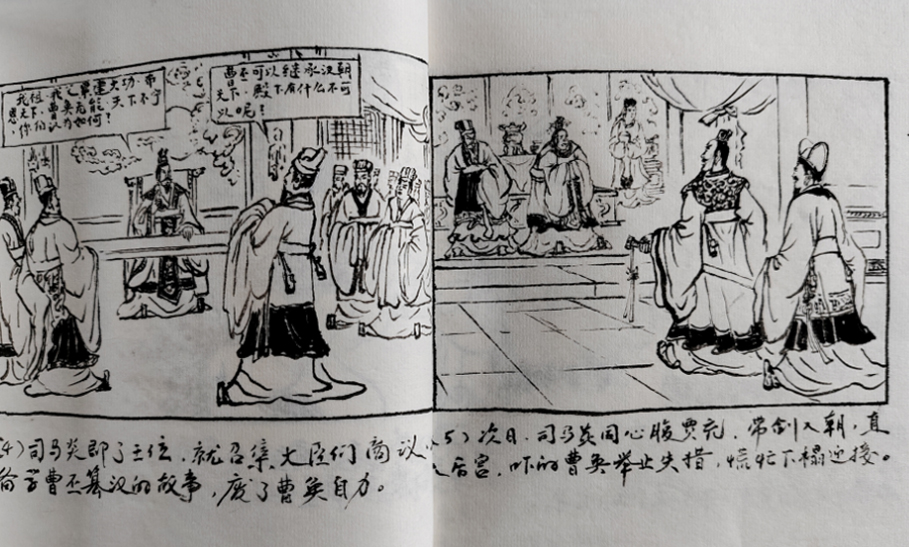 建大功·帝
曹奂无能 天下不宁
天下·你们认为如何?
曹丕可以继承汉朝
天下·殿下有什么不可
以呢?
4)司马炎即了王位、就召集大臣们商议
学曹丕篡汉的故事,废了曹奂自力。
5)次日·司马炎同心腹贾充、带剑入朝,直
入后宫,吓的曹奂举止失措,慌忙下榻迎接。